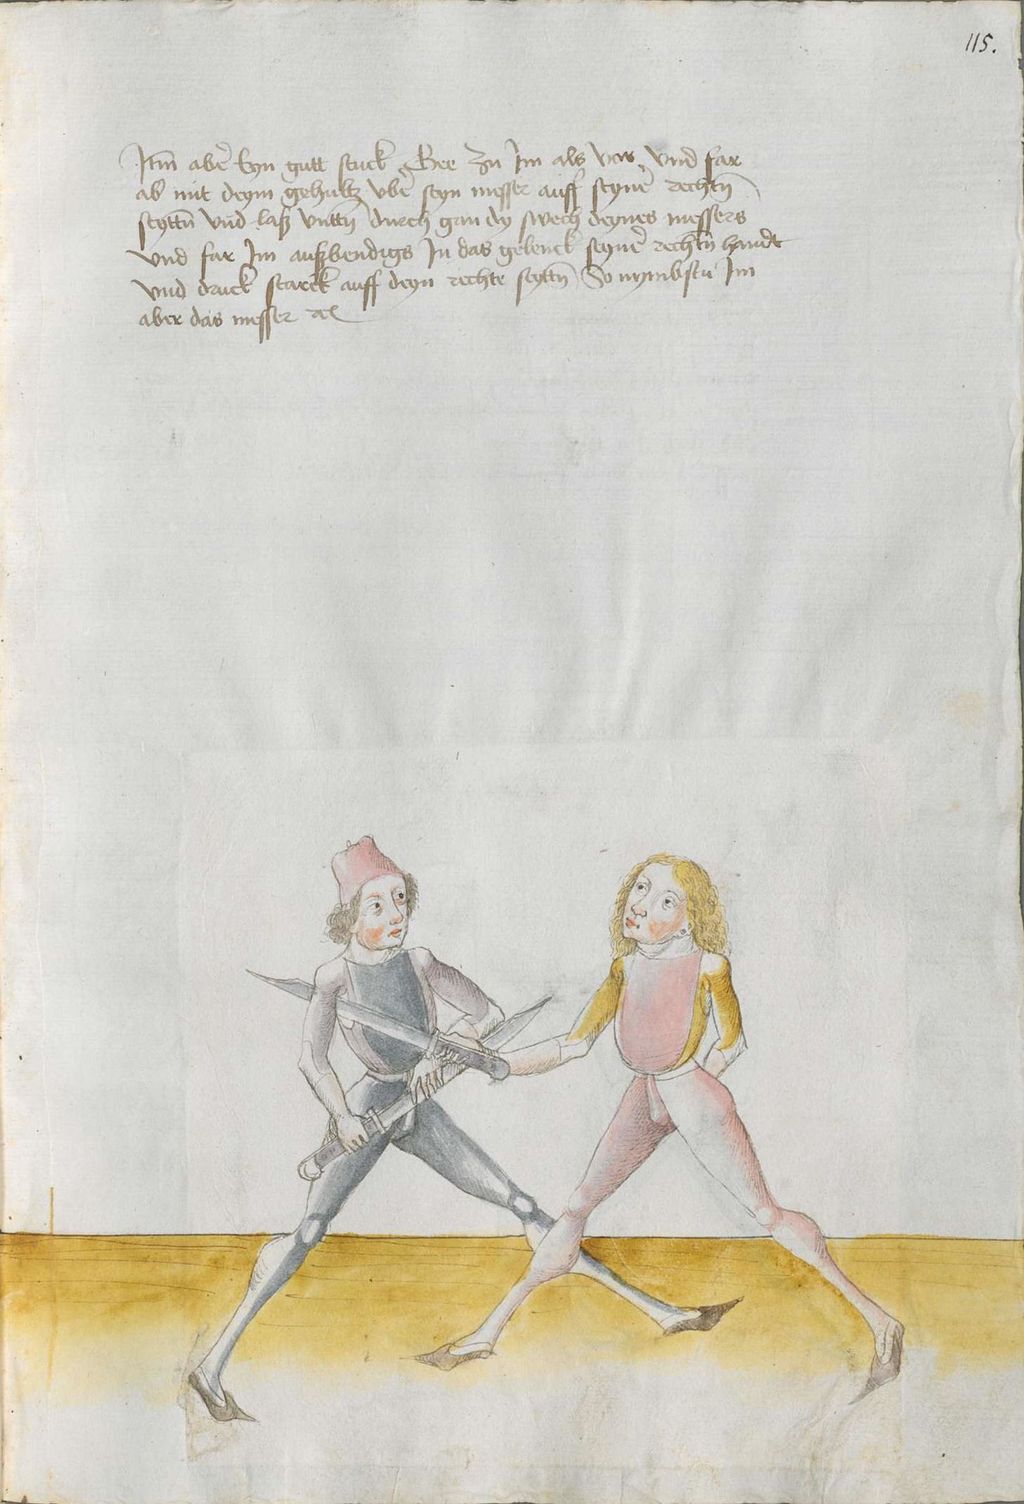 115.
Jtm̄ aber̄ Eyn gutt stuck Gee zu Im als vor vnd far
ab mit deym gehultz vber̄ seyn messer auff seyner̄ rechtn̄
seyttn̄ vnd laß vnttn̄ durch gan dy swech deynes messers
vnd far Im außbendigs In das gelenck seyner̄ rechtn̄ handt
vnd druck starck auff deyn rechte seyttn̄ So nymbstu Im
aber das messer